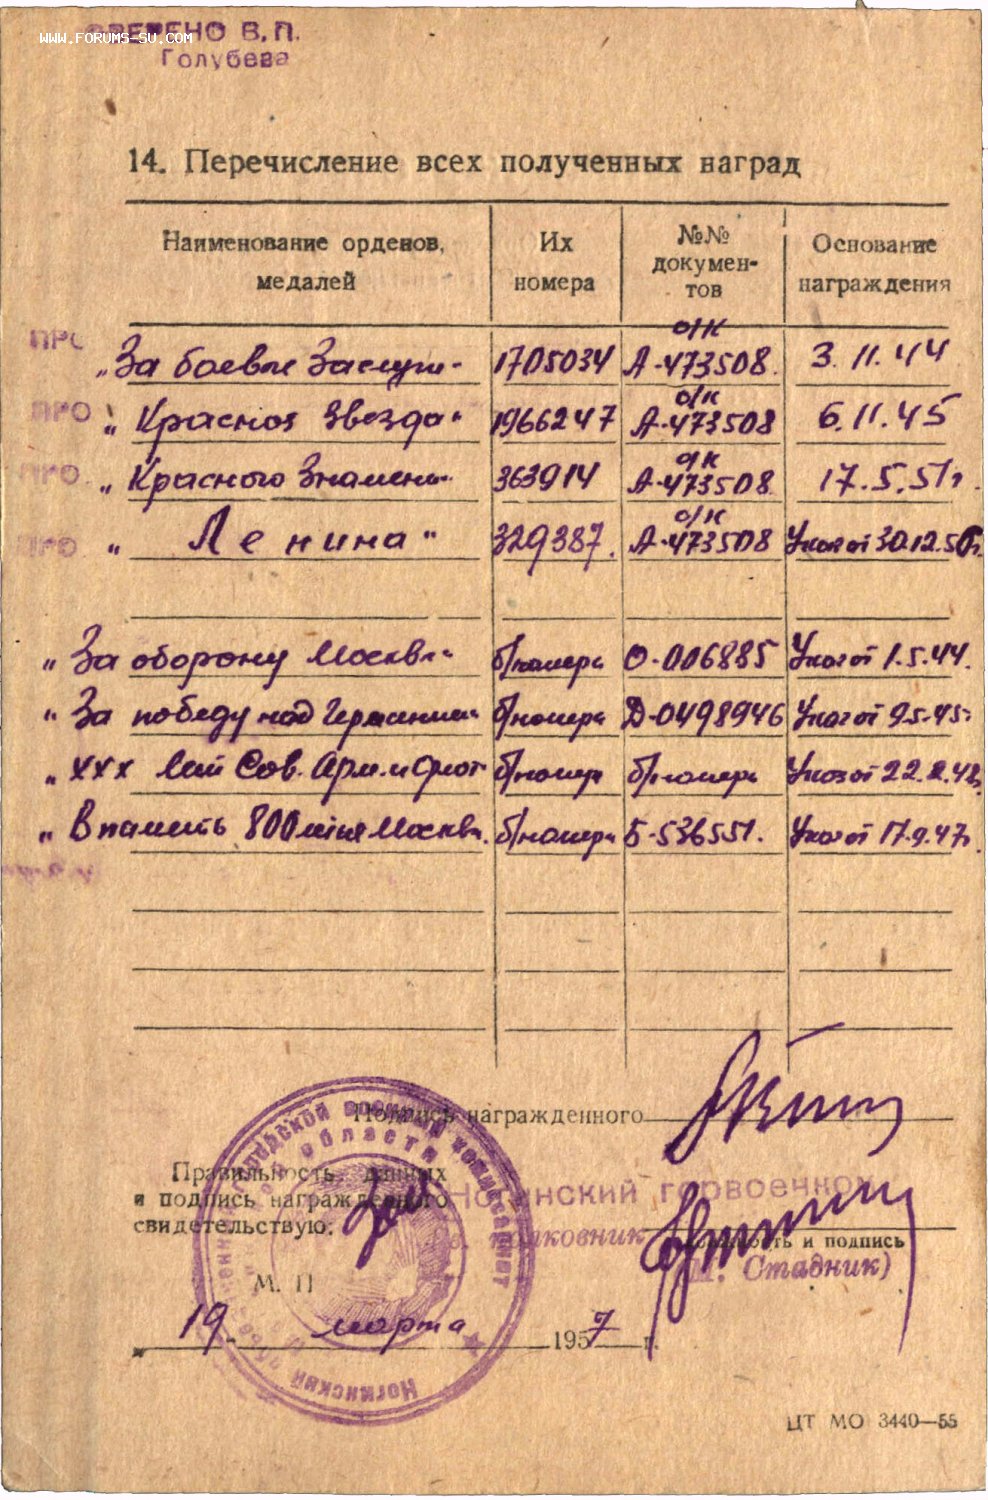 WWW.FORUMS-SU.COM
В.П.
Голубева
14. Перечисление всех полученных наград
Наименование орденов, медалей
Их номера
№№ докумен-
тов
Основание награждения
ПРО „За боевые Заслуги" 1705034 о/к А-473508. 3.11.44
ПРО „Красная Звезда" 1966247 о/к А-473508 6.11.45
ПРО. „Красного Знамени" 363914 о/к А-473508 17.5.51г.
ПРО „Ленина" 329387. о/к А-473508 Указ от 30.12.56г.
„За оборону Москвы" б/номера О-006885 Указ от 1.5.44.
„За победу над Германией" б/номера Д-0498946 Указ от 9.5.45г
„ХХХ лет Сов. Арм. и Флот" б/номера б/номера Указ от 22.2.48г.
„В память 800летия Москвы. б/номера Б-536551. Указ от 17.9.47г.
Подпись награжденного
Правильность данных
и подпись награжденного
свидетельствую:
Ногинский горвоенком
полковник
должность и подпись
(М. Стадник)
М. П
„19" марта 1957 г.
Ногинский объединенный городской военный комиссариат
области
ЦТ МО 3440—55